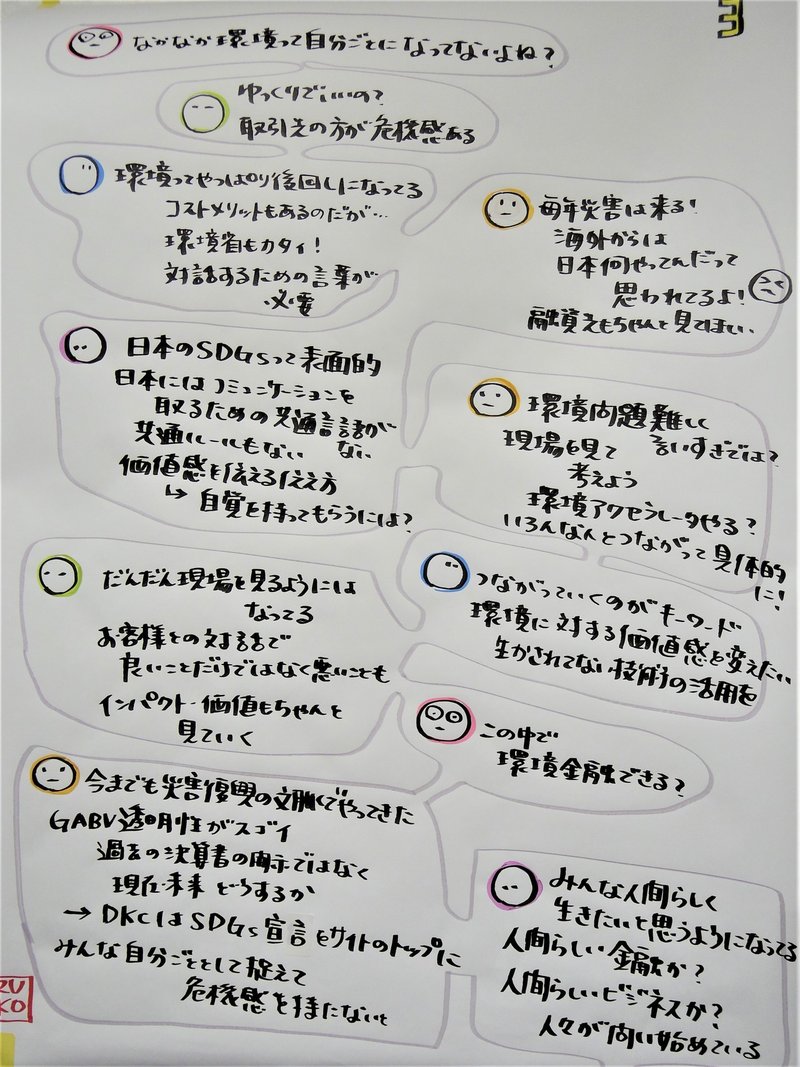 3
なかなか環境って自分ごとになってないよね?
ゆっくりでいいの?
取引先の方が危機感ある
環境ってやっぱり後回しになってる
コストメリットもあるのだが…
環境省もカタイ!
対話するための言葉が
必要
毎年災害は来る!
海外からは
日本何やってんだって
思われてるよ!
融資先もちゃんと見てほしい
日本のSDGsって表面的
日本にはコミュニケーションを
取るための共通言語が
ない
共通ルールもない
価値感を伝える伝え方
↳ 自覚を持ってもらうには?
環境問題難しく
言いすぎでは?
現場を見て
考えよう
環境アクセラレータやる?
いろんな人とつながって具体的
に!
だんだん現場を見るようには
なってる
お客様との対話で
良いことだけではなく悪いことも
インパクト・価値もちゃんと
見ていく
つながっていくのがキーワード
環境に対する価値感を変えたい
生かされてない技術の活用を
この中で
環境金融できる?
今までも災害復興の文脈でやってきた
GABV透明性がスゴイ
過去の決算書の開示ではなく
現在・未来 どうするか
→ DKCはSDGs宣言をサイトのトップに
みんな自分ごととして捉えて
危機感を持たないと
みんな人間らしく
生きたいと思うようになってる
人間らしい金融か?
人間らしいビジネスか?
人々が問い始めている
ZU
KO